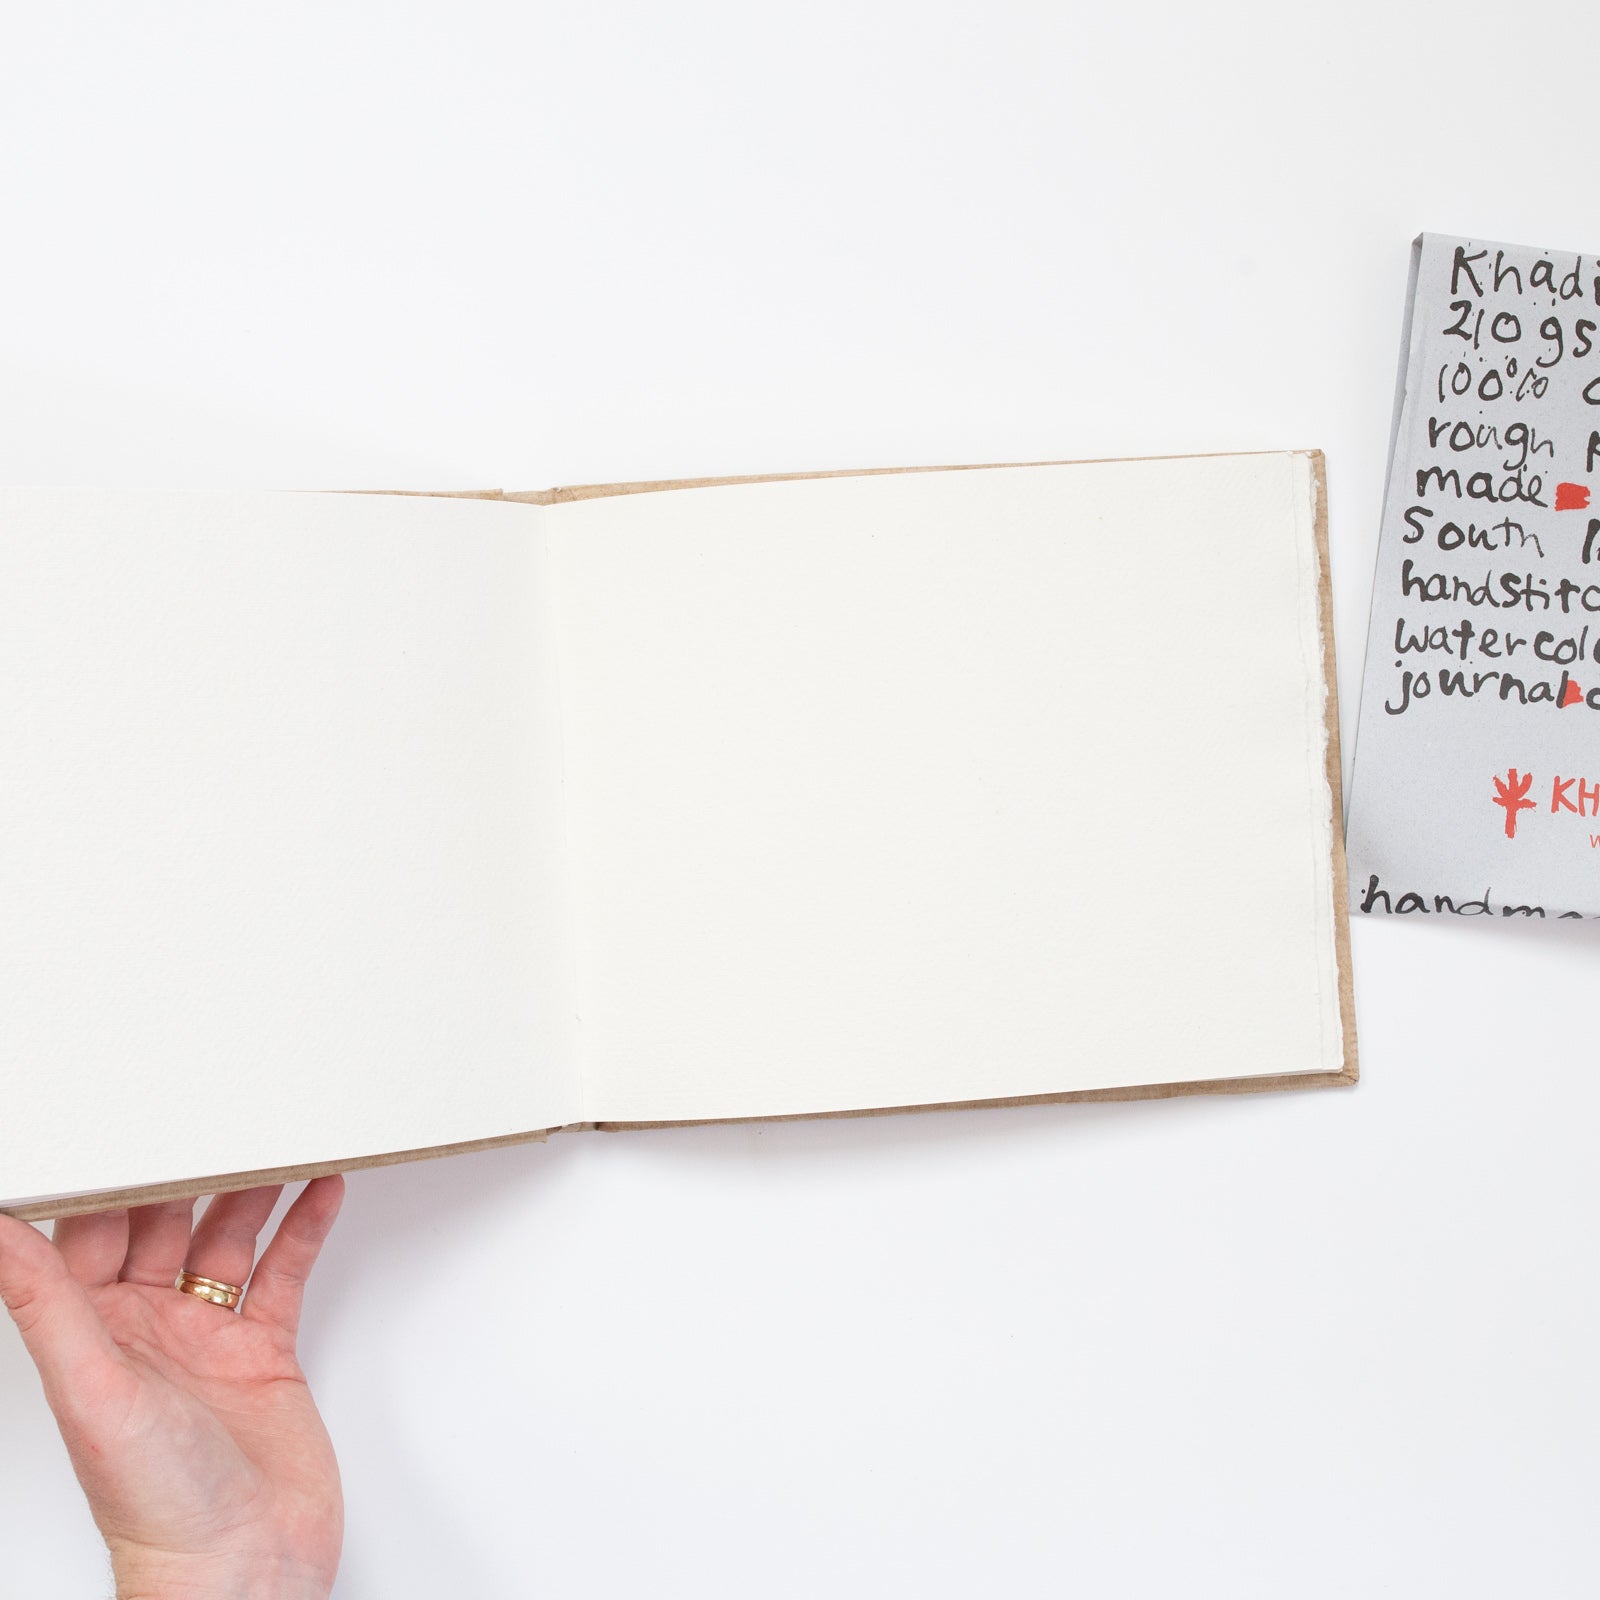 Khadi
210 gs
100%
rough
made
South
handstitc
watercol
journal
KH
handma